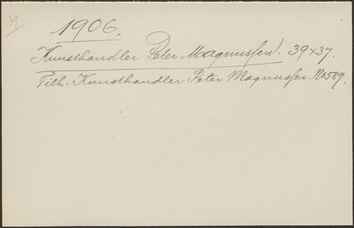 1906.
Kunsthandler Peter Magnussen. 39x37.
Tilh. Kunsthandler Peter Magnussen No 509.